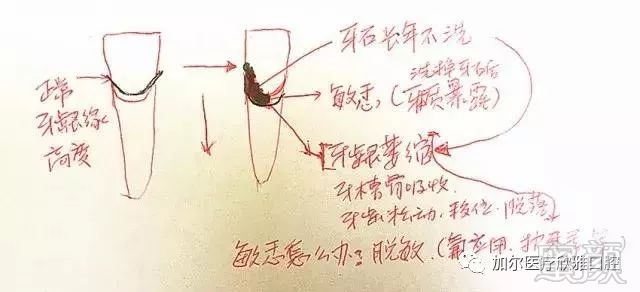 正常
牙龈缘
高度
牙石长年不洗
洗掉牙石后
敏感,(牙颈暴露)
[牙龈萎缩]
牙槽骨吸收
牙齿松动、移位、脱落
敏感怎么办?脱敏.(氟应用.护牙
加尔医疗欣雅口腔